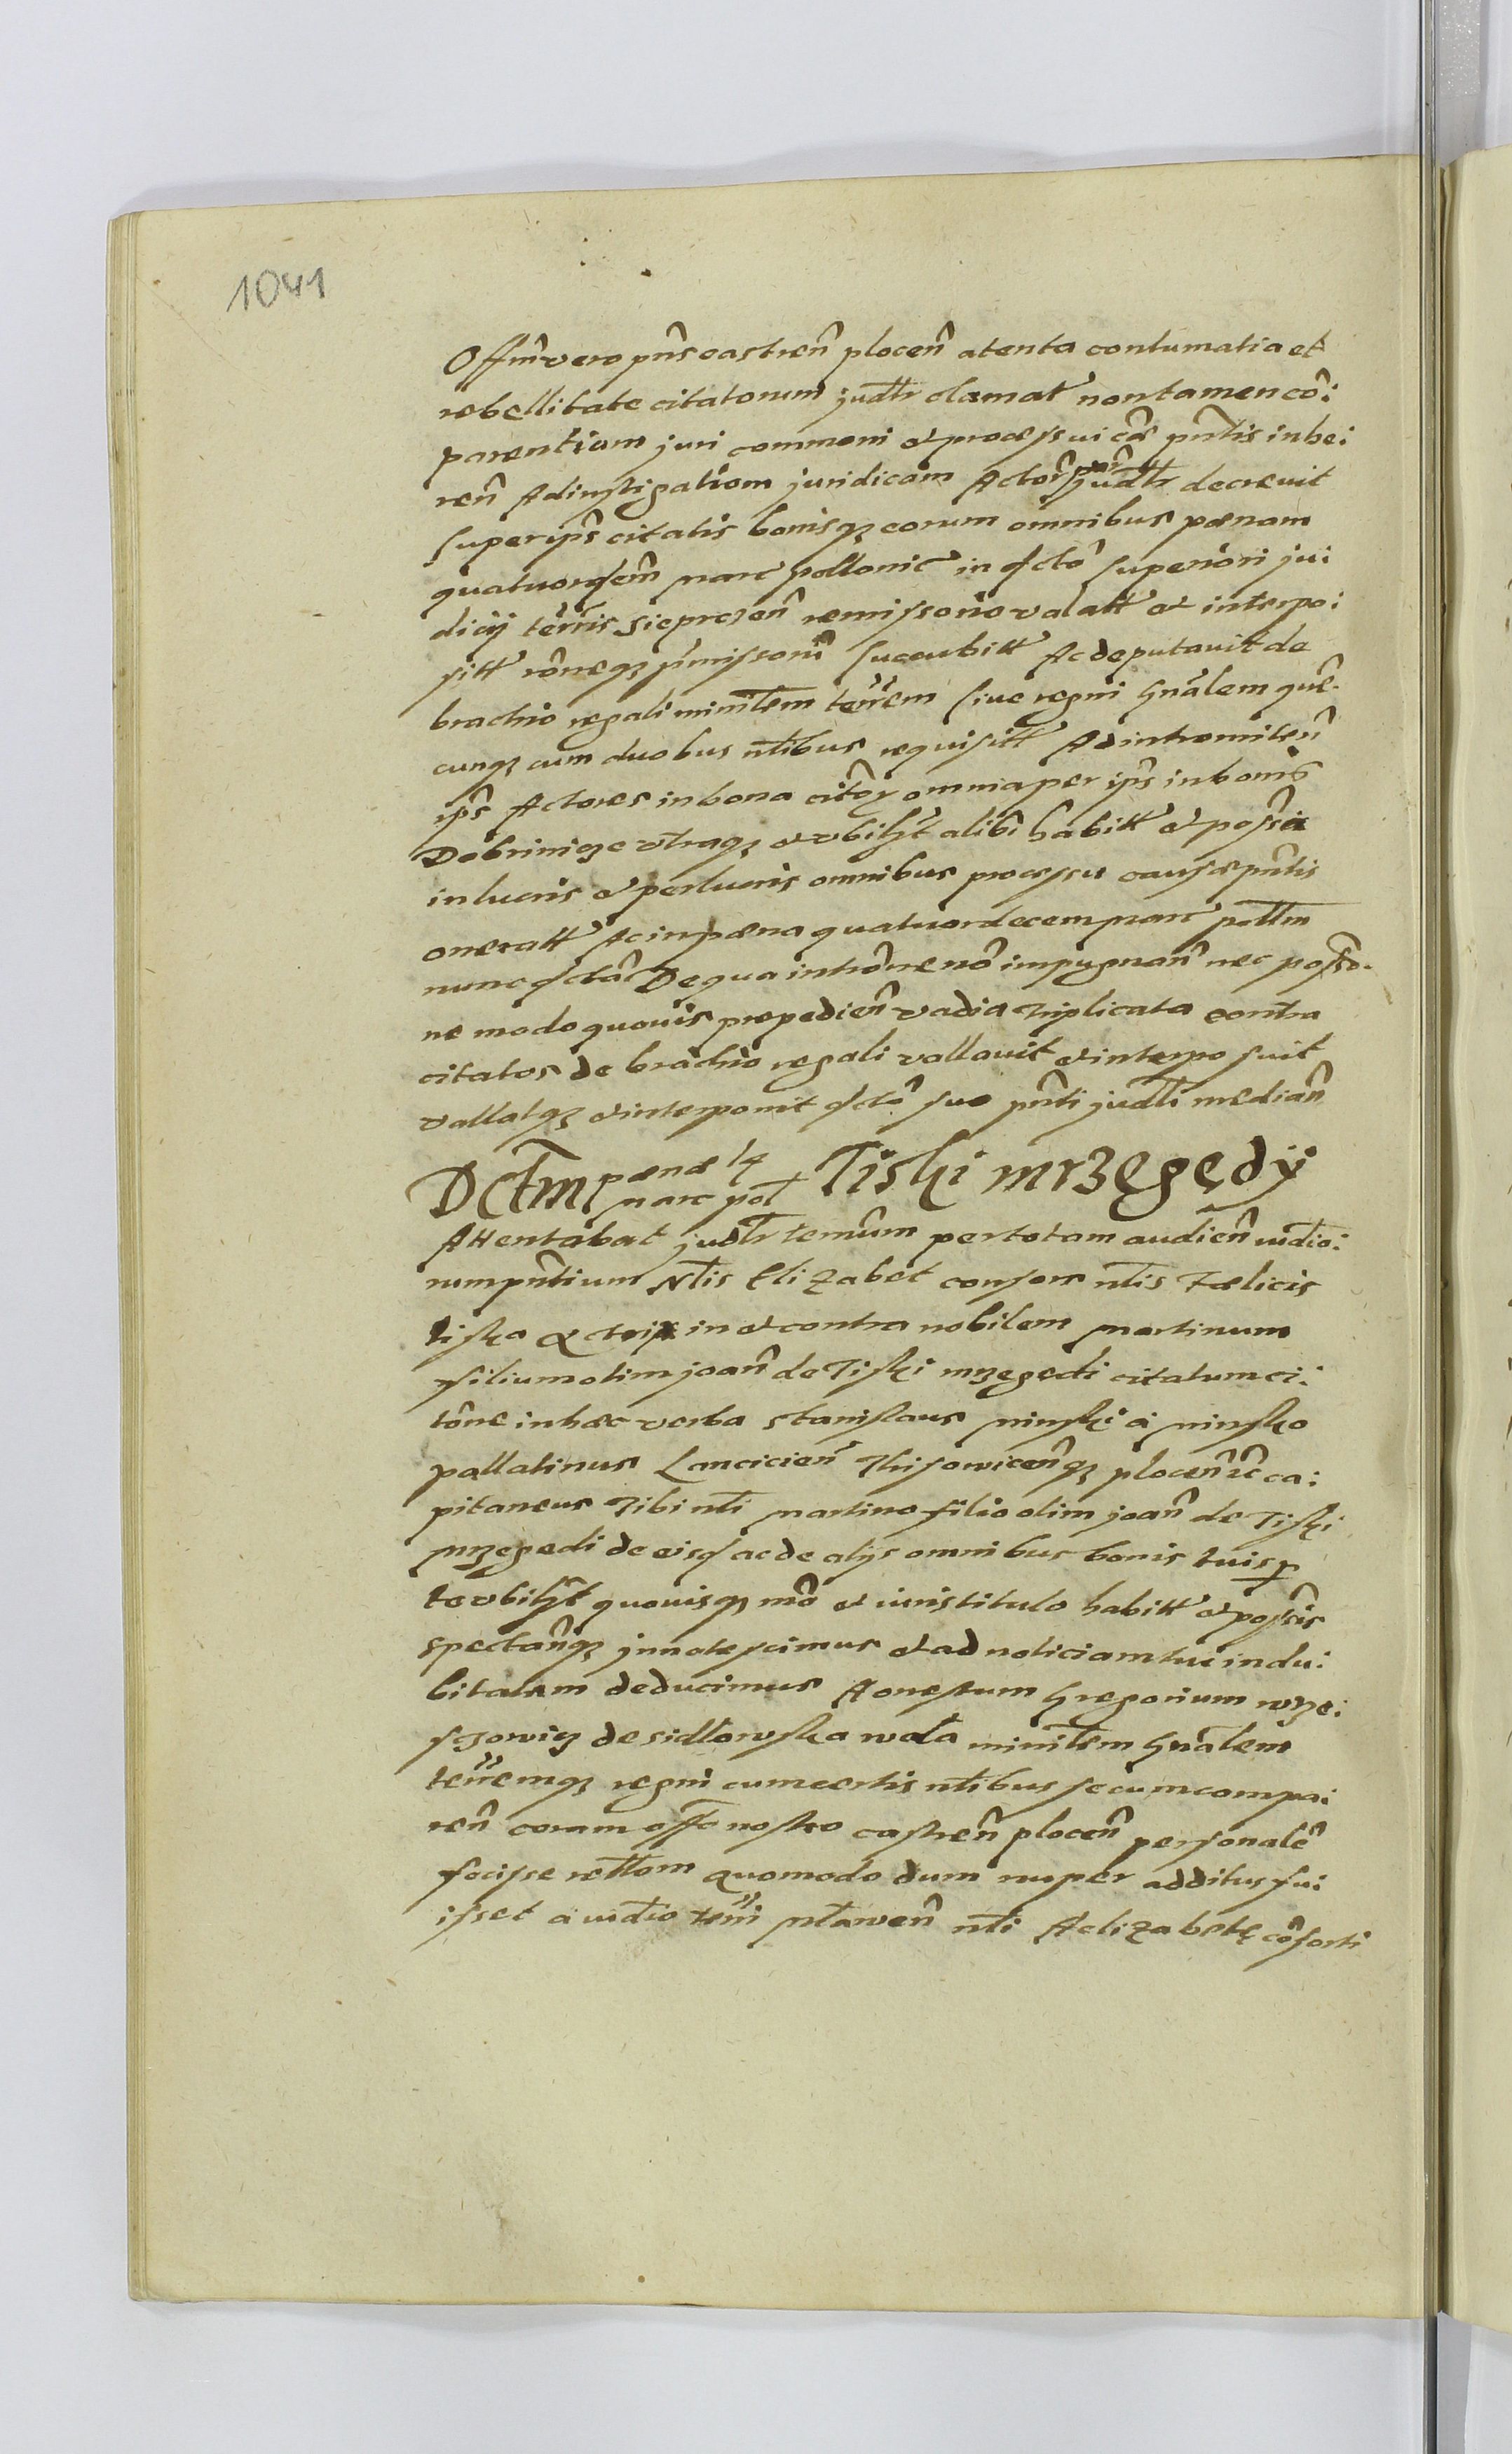 1041
Offm̃ vero pñs castreñ ploceñ atenta contumatia et
rebellitate citatorum judtr clamat non tamen cõ:
parentiam juri commoni et processui cãe pñtis inhe:
reñ Ad instigatiom juridicam Actor̃ par̃ judtr decrevit
super ip̃s citatis bonisqȝ eorum omnibus pœnam
quatuordem̃ marc pollonic in dcto superiori ju:
dicij terris Sieprczeñ remissorio valatt et interpo:
sitt rõneqȝ p̃missorũ succubitt Ac deputavit de
brachio regali minilem terrem sive regni gnãlem quẽ-
cunqȝ cum duobus ntibus requisitt Ad intromiteñ
ip̃s Actores in bona citor omnia per ip̃s in bonis
Dobrinicze utraqȝ et ubilȝt alibi habitt et possa
in lucris et perlucris omnibus processu causæ pñtis
oneratt Ac in pœna quatuordecem marc poltm
nunc dctãr De qua intrõne nõ impugnañ nec possõ-
ne modo quovis prepedieñ vadia triplicata contra
citatos de brachio regali vallavit et interposuit
vallatqȝ et interponit dctõ suo pñti judli mediañ
Dctm pœnæ 14 marc pol Tiski mrzegędÿ
Attentabat judtr temũm per totam audieñ iudio:
rum pñtium Ntis Elizabet consors ntis Fælicis
tisko actrix in et contra nobilem martinum
filium olim joañ de Tiski mrzegedi citatum ci:
tõne in hæc verba Stanislaus minski a minsko
pallatinus Lanciciem̃ Thisowiceñqȝ ploceñ zc ca:
pitaneus Tibi nti martino filio olim joañ de Tiski
mrzegedi de eisd ac de alijs omnibus bonis tuis p
te ubilȝt quovisqȝ mõ et iuris titulo habitt et possis
spectañqȝ jnnotescimus et ad noticiam tui indu:
bitatam deducimus Honestum Gregorium wrze:
sczowicz de sidlowska wola minilem gnãlem
terremqȝ regni cum certis ntibus secum compa:
reñ coram offo nostro castreñ ploceñ personalẽ
fecisse reltom Quomodo dum nuper additus fu:
isset a iudio terri mlaweñ nti Aelizabetę cõsorti